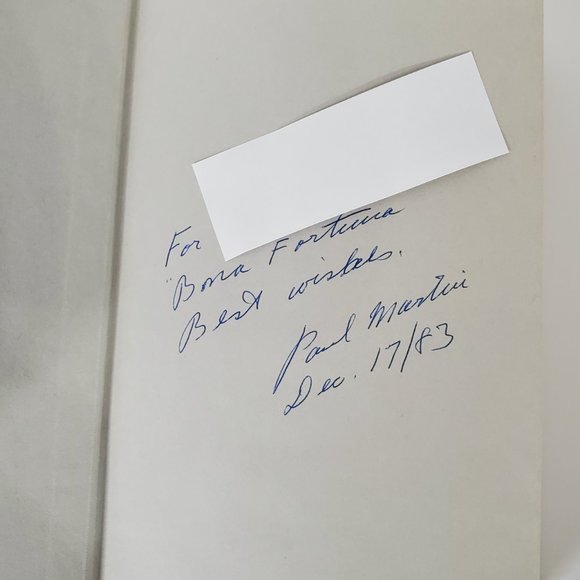 For
"Bona Fortuna
Best wishes.
Paul Martin
Dec. 17/83